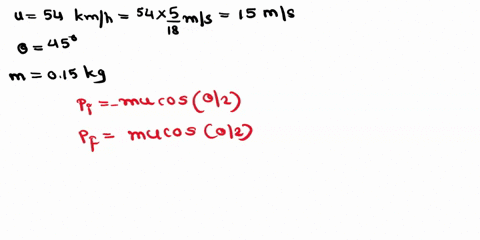 u = 54 km/h = 54 × 5/18 m/s = 15 m/s
θ = 45°
m = 0.15 kg
Pi = -mu cos (θ/2)
Pf = mu cos (θ/2)